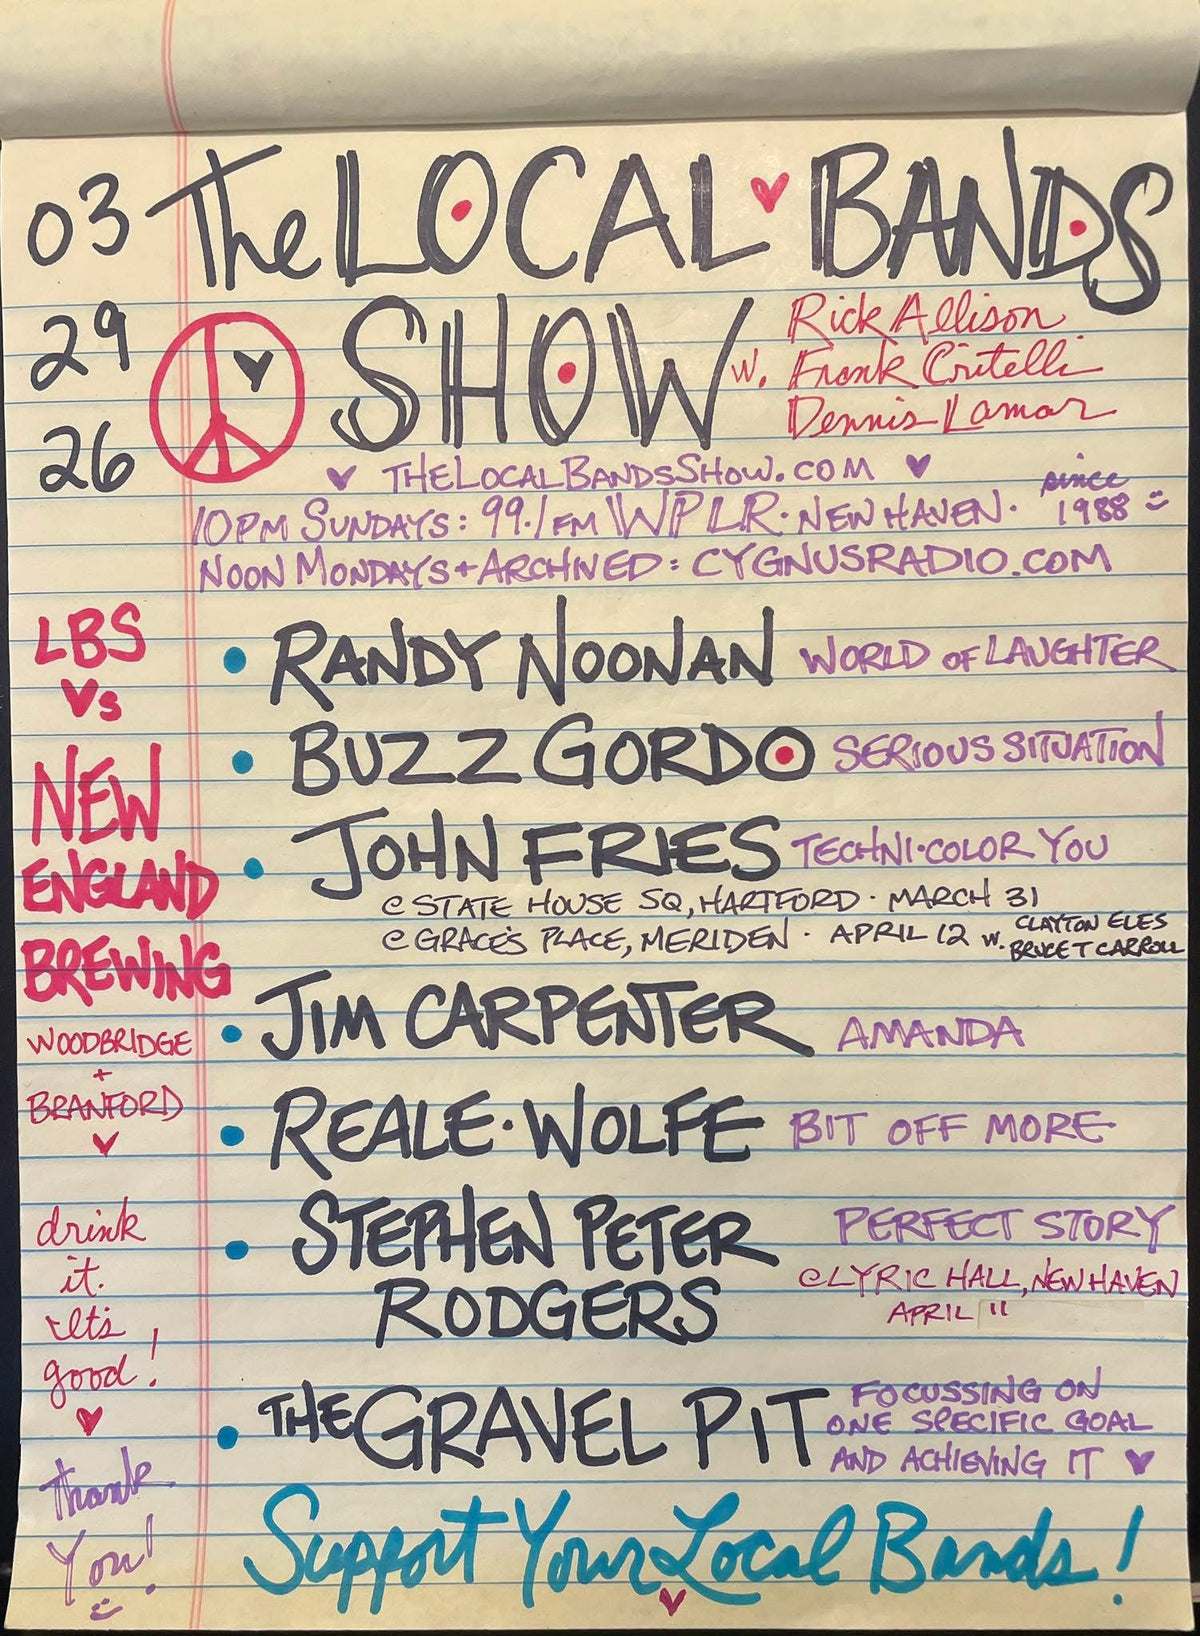 03
29
26
The LOCAL BANDS
SHOW
w. Rick Allison
Frank Critelli
Dennis Lamar
THELOCALBANDSSHOW.COM
10PM SUNDAYS: 99.1 FM WPLR · NEW HAVEN · since 1988
NOON MONDAYS + ARCHIVED: CYGNUSRADIO.COM
LBS
♥s
NEW
ENGLAND
BREWING
WOODBRIDGE
+
BRANFORD
♥
drink
it.
It's
good!
♥
Thank
You!
• RANDY NOONAN WORLD OF LAUGHTER
• BUZZ GORDO SERIOUS SITUATION
• JOHN FRIES TECHNI·COLOR YOU
@ STATE HOUSE SQ, HARTFORD · MARCH 31
@ GRACE'S PLACE, MERIDEN · APRIL 12 w. CLAYTON ELES
BRUCE T CARROLL
• JIM CARPENTER AMANDA
• REALE·WOLFE BIT OFF MORE
• STEPHEN PETER
RODGERS
PERFECT STORY
@ LYRIC HALL, NEW HAVEN
APRIL 11
• THE GRAVEL PIT
FOCUSSING ON
ONE SPECIFIC GOAL
AND ACHIEVING IT ♥
Support Your Local Bands!